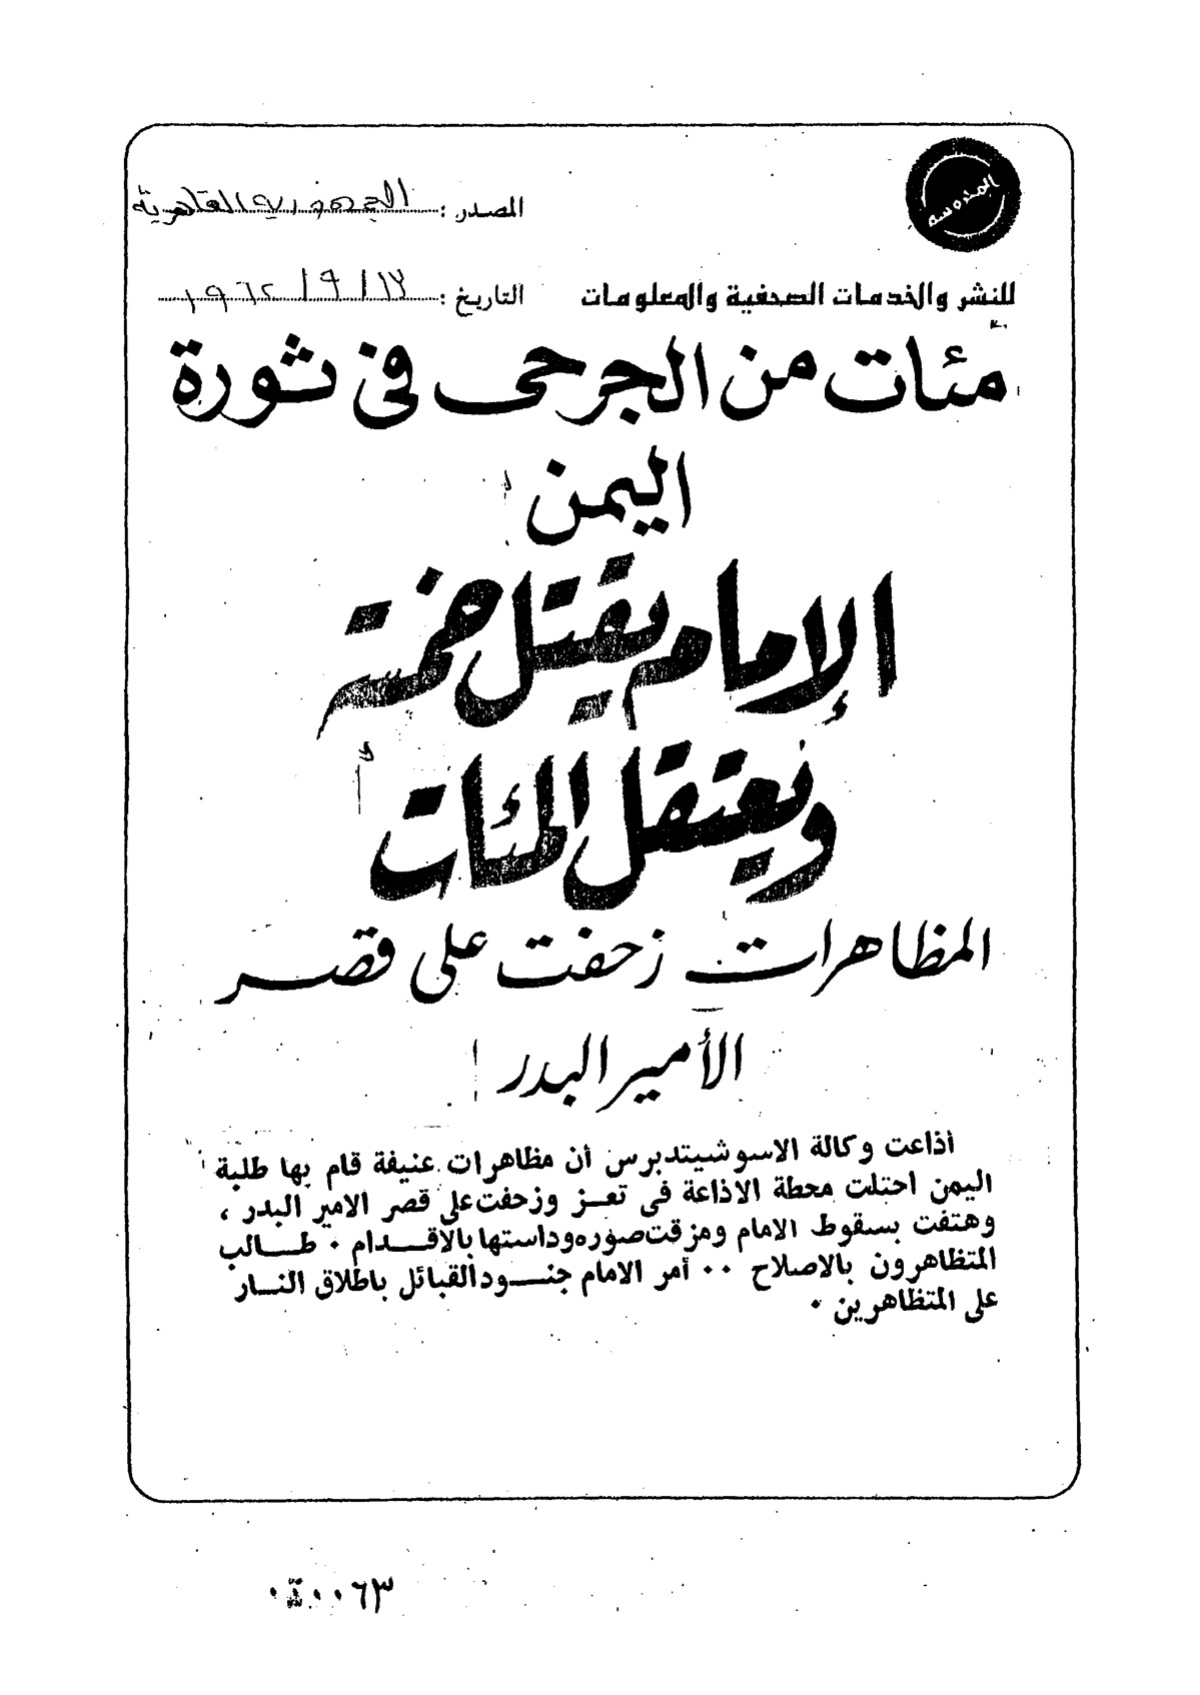 المدوسه
المصدر : الجمهورية القاهرية
للنشر والخدمات الصحفية والمعلومات
التاريخ : ١٣ / ٩ / ١٩٦٢
مئات من الجرحى فى ثورة
اليمن
الإمام يقتل خمسة
ويعتقل المئات
المظاهرات زحفت على قصر
الأمير البدر
أذاعت وكالة الاسوشيتدبرس أن مظاهرات عنيفة قام بها طلبة
اليمن احتلت محطة الاذاعة فى تعز وزحفت على قصر الامير البدر ،
وهتفت بسقوط الامام ومزقت صوره وداستها بالاقدام ٠ طالب
المتظاهرون بالاصلاح ٠٠ أمر الامام جنود القبائل باطلاق النار
على المتظاهرين ٠